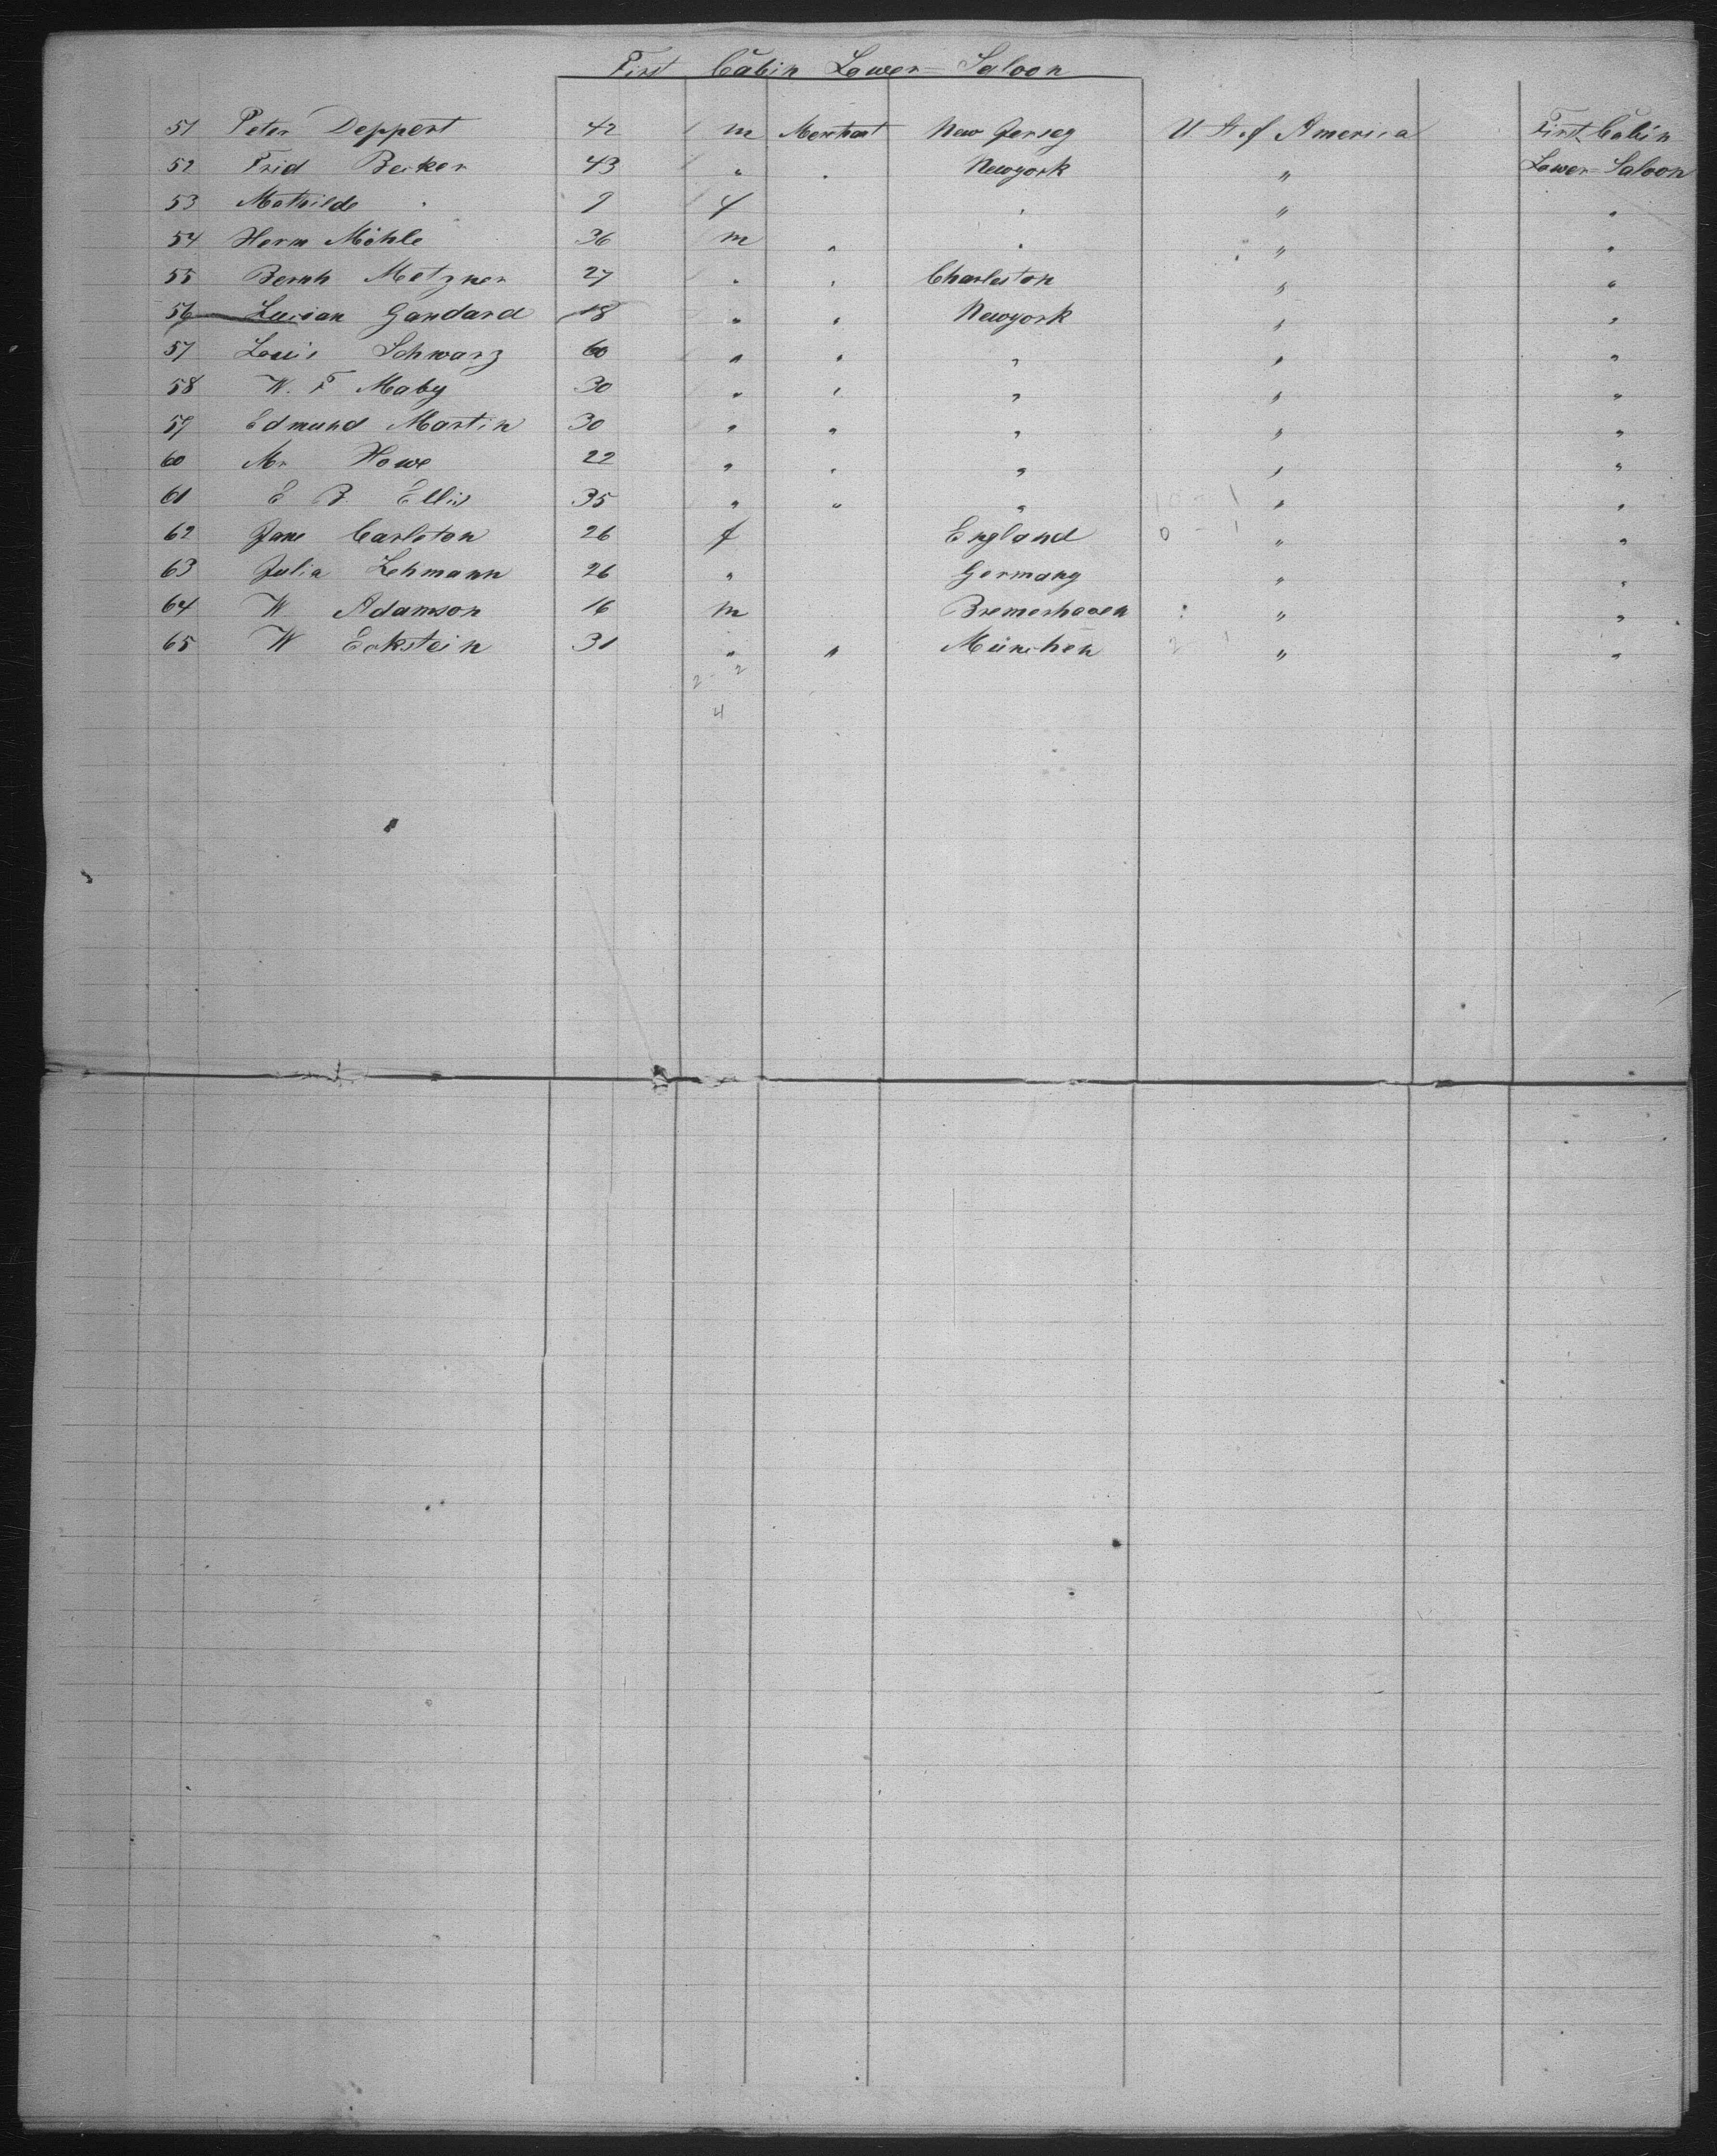 First Cabin Lower=Saloon
51 Peter Deppert 42 m Merchant New Jersey U. St. of America First Cabin
52 Frid Becker 43 " " Newyork " Lower=Saloon
53 Mathilde " 9 f " " "
54 Herm Möhle 36 m " " " "
55 Bernh Metzner 27 " " Charleston " "
56 Lucian Gandard 18 " " Newyork " "
57 Louis Schwarz 60 " " " " "
58 W. F Maby 30 " " " " "
59 Edmund Martin 30 " " " " "
60 Mr Howe 22 " " " " "
61 E B Ellis 35 " " " " "
62 Jane Carleton 26 f England " "
63 Julia Lehmann 26 " Germany " "
64 W Adamson 16 m Bremerhaven " "
65 W Eckstein 31 " " München " "
2 - 2
4